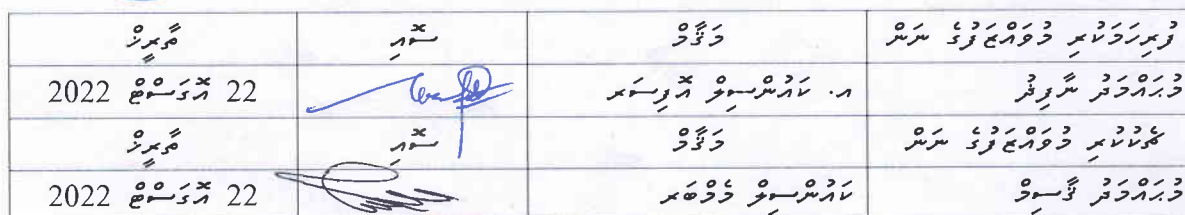 ފުރިހަމަކުރި މުވައްޒަފުގެ ނަން މަޤާމް ސޮއި ތާރީޚް
މުޙައްމަދު ނާފިޛު އ. ކައުންސިލް އޮފިސަރ 22 އޮގަސްޓް 2022
ޗެކުކުރި މުވައްޒަފުގެ ނަން މަޤާމް ސޮއި ތާރީޚް
މުޙައްމަދު ޤާސިމް ކައުންސިލް މެމްބަރ 22 އޮގަސްޓް 2022